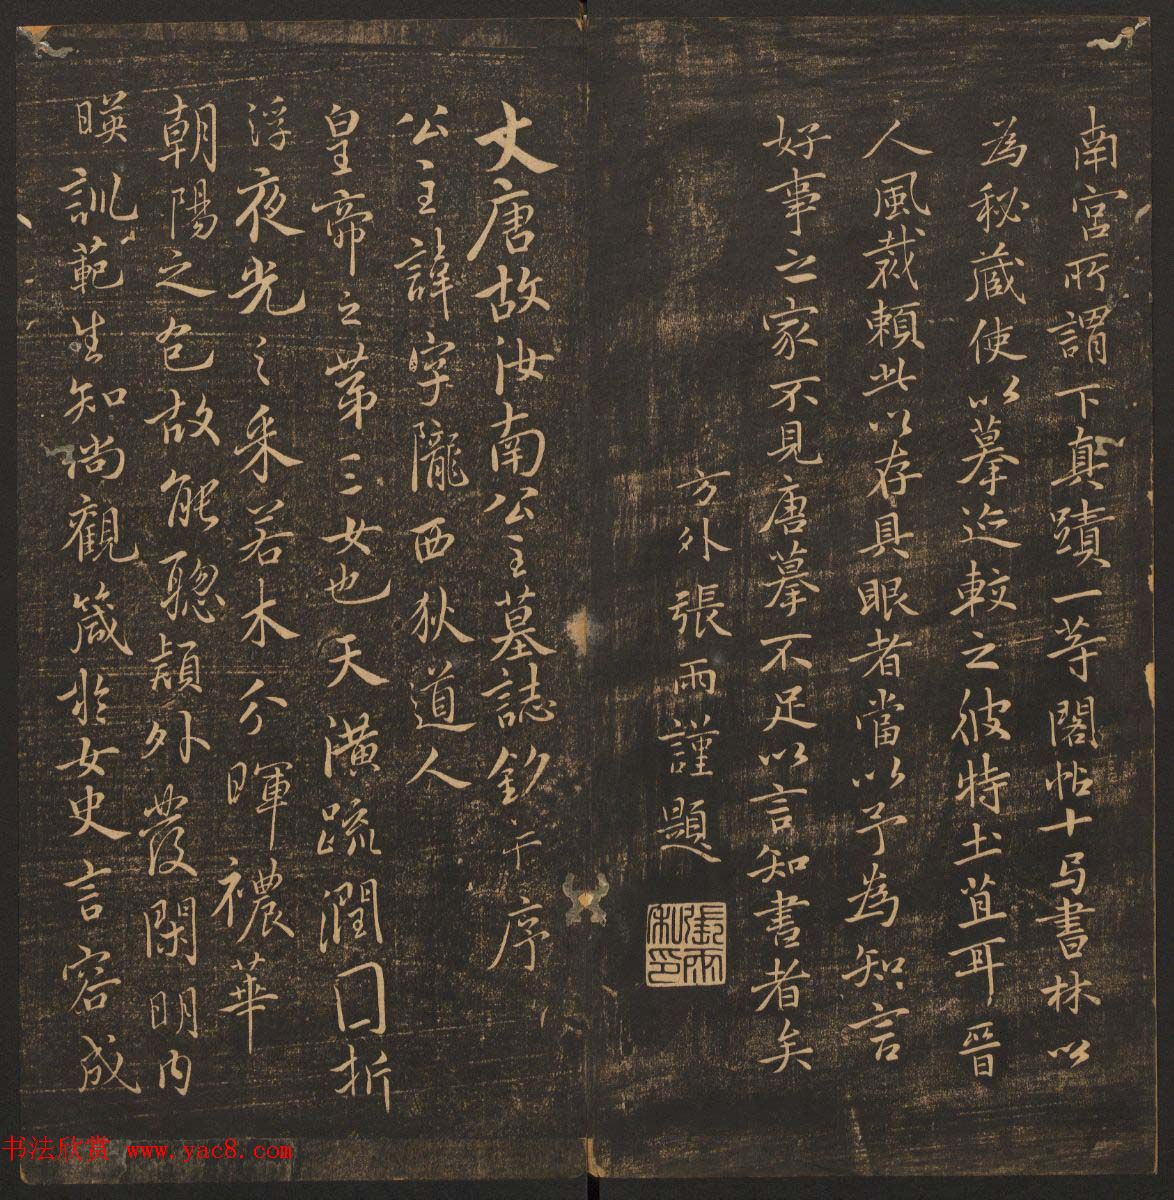 南宫所謂下真蹟一等閣帖十与書林以
為秘蔵使以摹迹較之彼特土苴耳晉
人風裁賴此以存具眼者當以予為知言
好事之家不見唐摹不足以言知書者矣
方外張雨謹題
張雨私印
大唐故汝南公主墓誌銘并序
公主諱字隴西狄道人
皇帝之第三女也天潢疏潤圓折
浮夜光之采若木分暉穠華
朝陽之色故能聰穎外發閑明内
暎訓範生知尚觀箴於女史言容成
书法欣赏 www.yac8.com